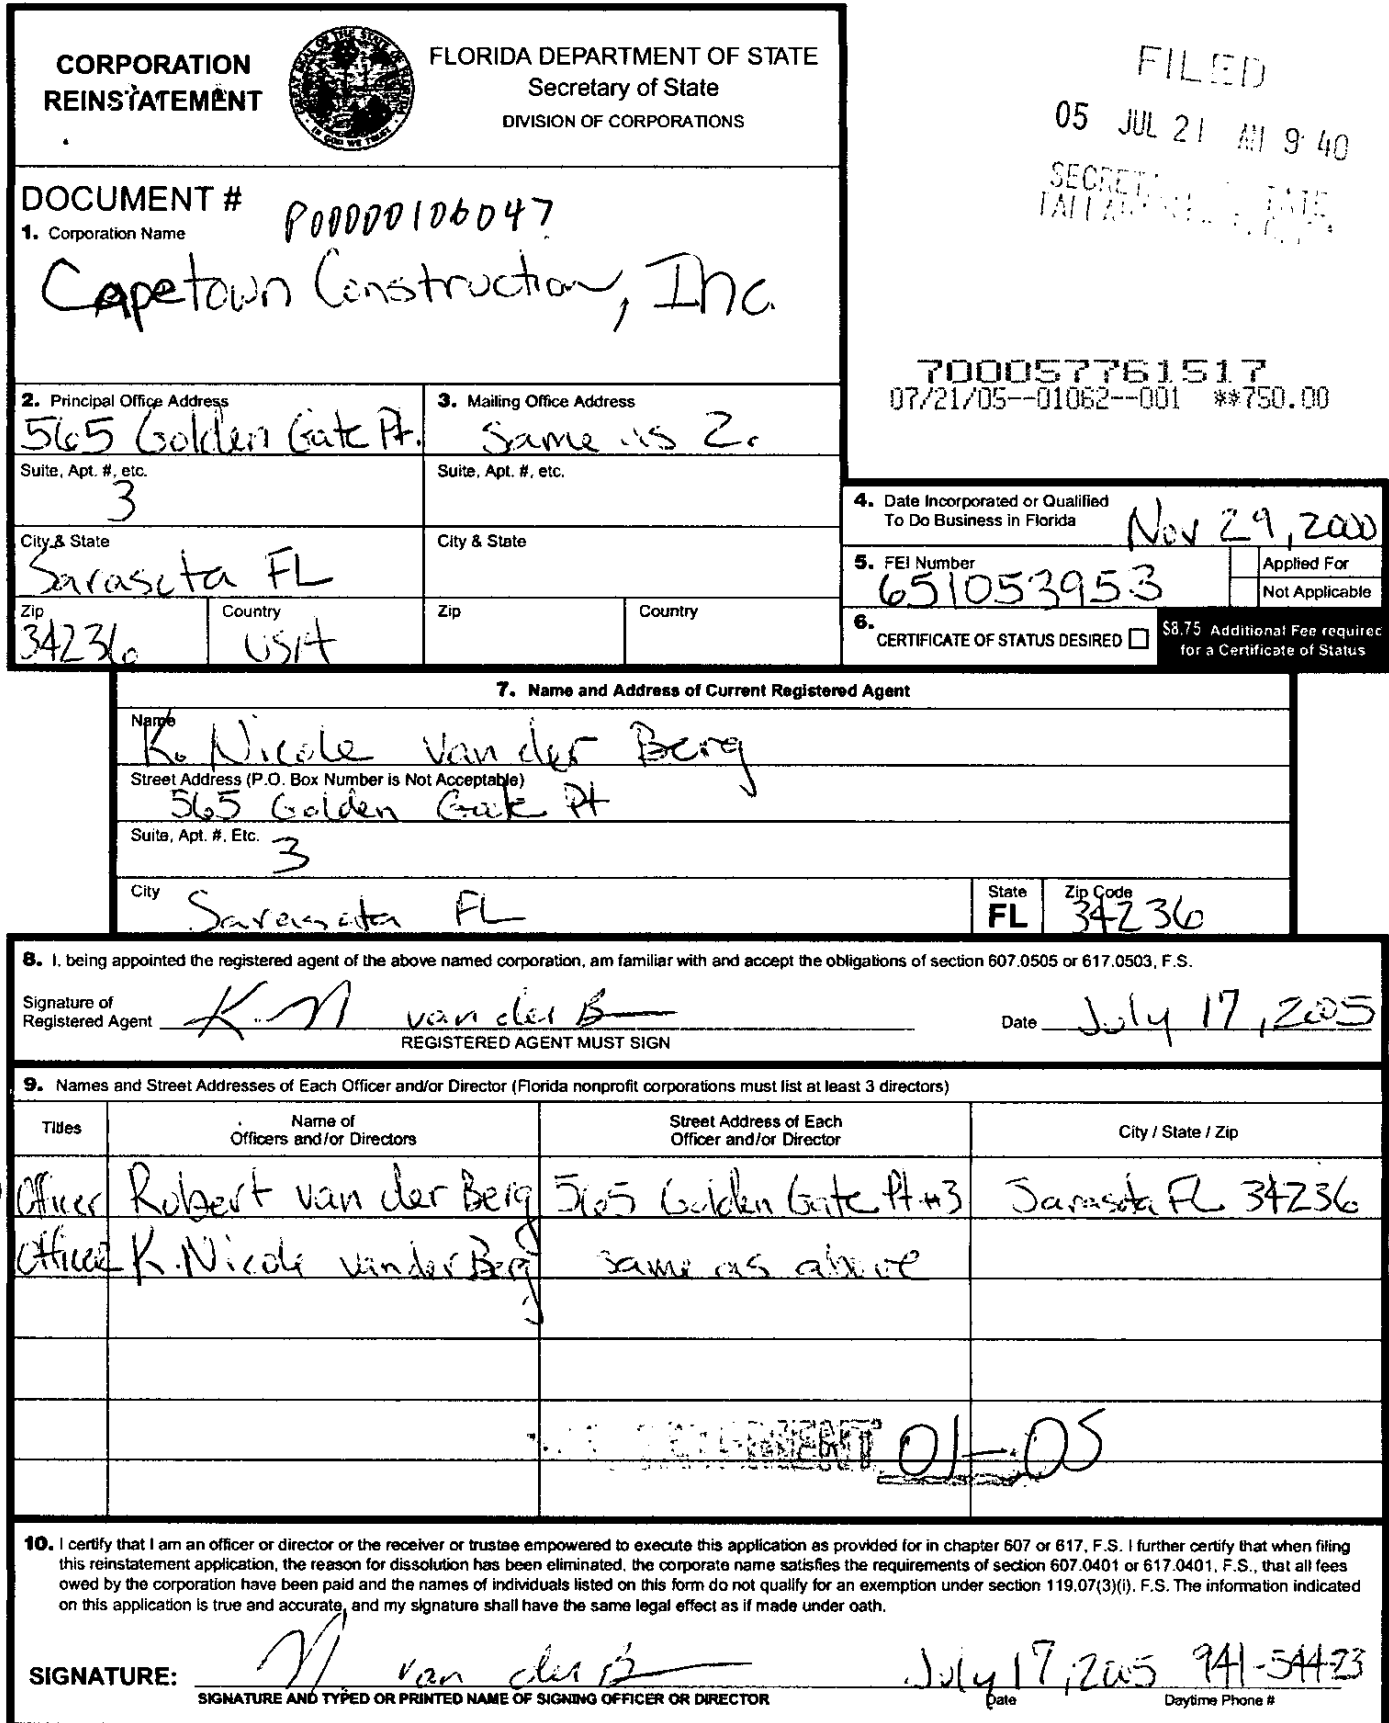 CORPORATION
REINSTATEMENT
FLORIDA DEPARTMENT OF STATE
Secretary of State
DIVISION OF CORPORATIONS
FILED
05 JUL 21 AM 9:40
DOCUMENT # P00000106047
1. Corporation Name
Capetown Construction, Inc.
700057761517
07/21/05--01062--001 **750.00
2. Principal Office Address
565 Golden Gate Pt.
3. Mailing Office Address
Same as 2.
Suite, Apt. #, etc.
3
Suite, Apt. #, etc.
City & State
Sarasota FL
City & State
Zip
34236
Country
USA
Zip
Country
4. Date Incorporated or Qualified
To Do Business in Florida
Nov 29, 2000
5. FEI Number
651053953
Applied For
Not Applicable
6. CERTIFICATE OF STATUS DESIRED
$8.75 Additional Fee required
for a Certificate of Status
7. Name and Address of Current Registered Agent
Name
K. Nicole van der Berg
Street Address (P.O. Box Number is Not Acceptable)
565 Golden Gate Pt
Suite, Apt. #, Etc.
3
City
Sarasota FL
State
FL
Zip Code
34236
8. I, being appointed the registered agent of the above named corporation, am familiar with and accept the obligations of section 607.0505 or 617.0503, F.S.
Signature of
Registered Agent K. N van der B
REGISTERED AGENT MUST SIGN
Date July 17, 2005
9. Names and Street Addresses of Each Officer and/or Director (Florida nonprofit corporations must list at least 3 directors)
Titles
Name of
Officers and/or Directors
Street Address of Each
Officer and/or Director
City / State / Zip
Officer Robert van der Berg 565 Golden Gate Pt #3 Sarasota FL 34236
Officer K. Nicole van der Berg same as above
01-05
10. I certify that I am an officer or director or the receiver or trustee empowered to execute this application as provided for in chapter 607 or 617, F.S. I further certify that when filing
this reinstatement application, the reason for dissolution has been eliminated, the corporate name satisfies the requirements of section 607.0401 or 617.0401, F.S., that all fees
owed by the corporation have been paid and the names of individuals listed on this form do not qualify for an exemption under section 119.07(3)(i), F.S. The information indicated
on this application is true and accurate, and my signature shall have the same legal effect as if made under oath.
SIGNATURE: N van der B July 17, 2005 941-544-23
SIGNATURE AND TYPED OR PRINTED NAME OF SIGNING OFFICER OR DIRECTOR
Date
Daytime Phone #